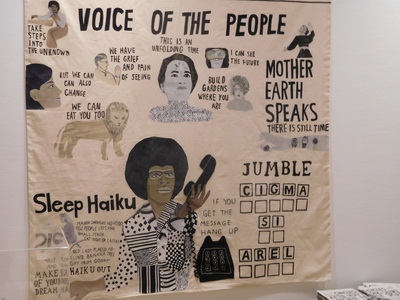 VOICE OF THE PEOPLE
TAKE
STEPS
INTO
THE UNKNOWN
THIS IS AN
UNFOLDING TIME
WE HAVE
THE GRIEF
AND PAIN
OF SEEING
I CAN SEE
THE FUTURE
BUT WE CAN
CAN ALSO
CHANGE
BUILD
GARDENS
WHERE YOU
ARE
MOTHER
EARTH
SPEAKS
THERE IS STILL TIME
WE CAN
EAT YOU TOO
Sleep Haiku
IF YOU
GET THE
MESSAGE
HANG UP
JUMBLE
CIGMA
SI
AREL
HAIKU OUT
OF YOUR
DREAM